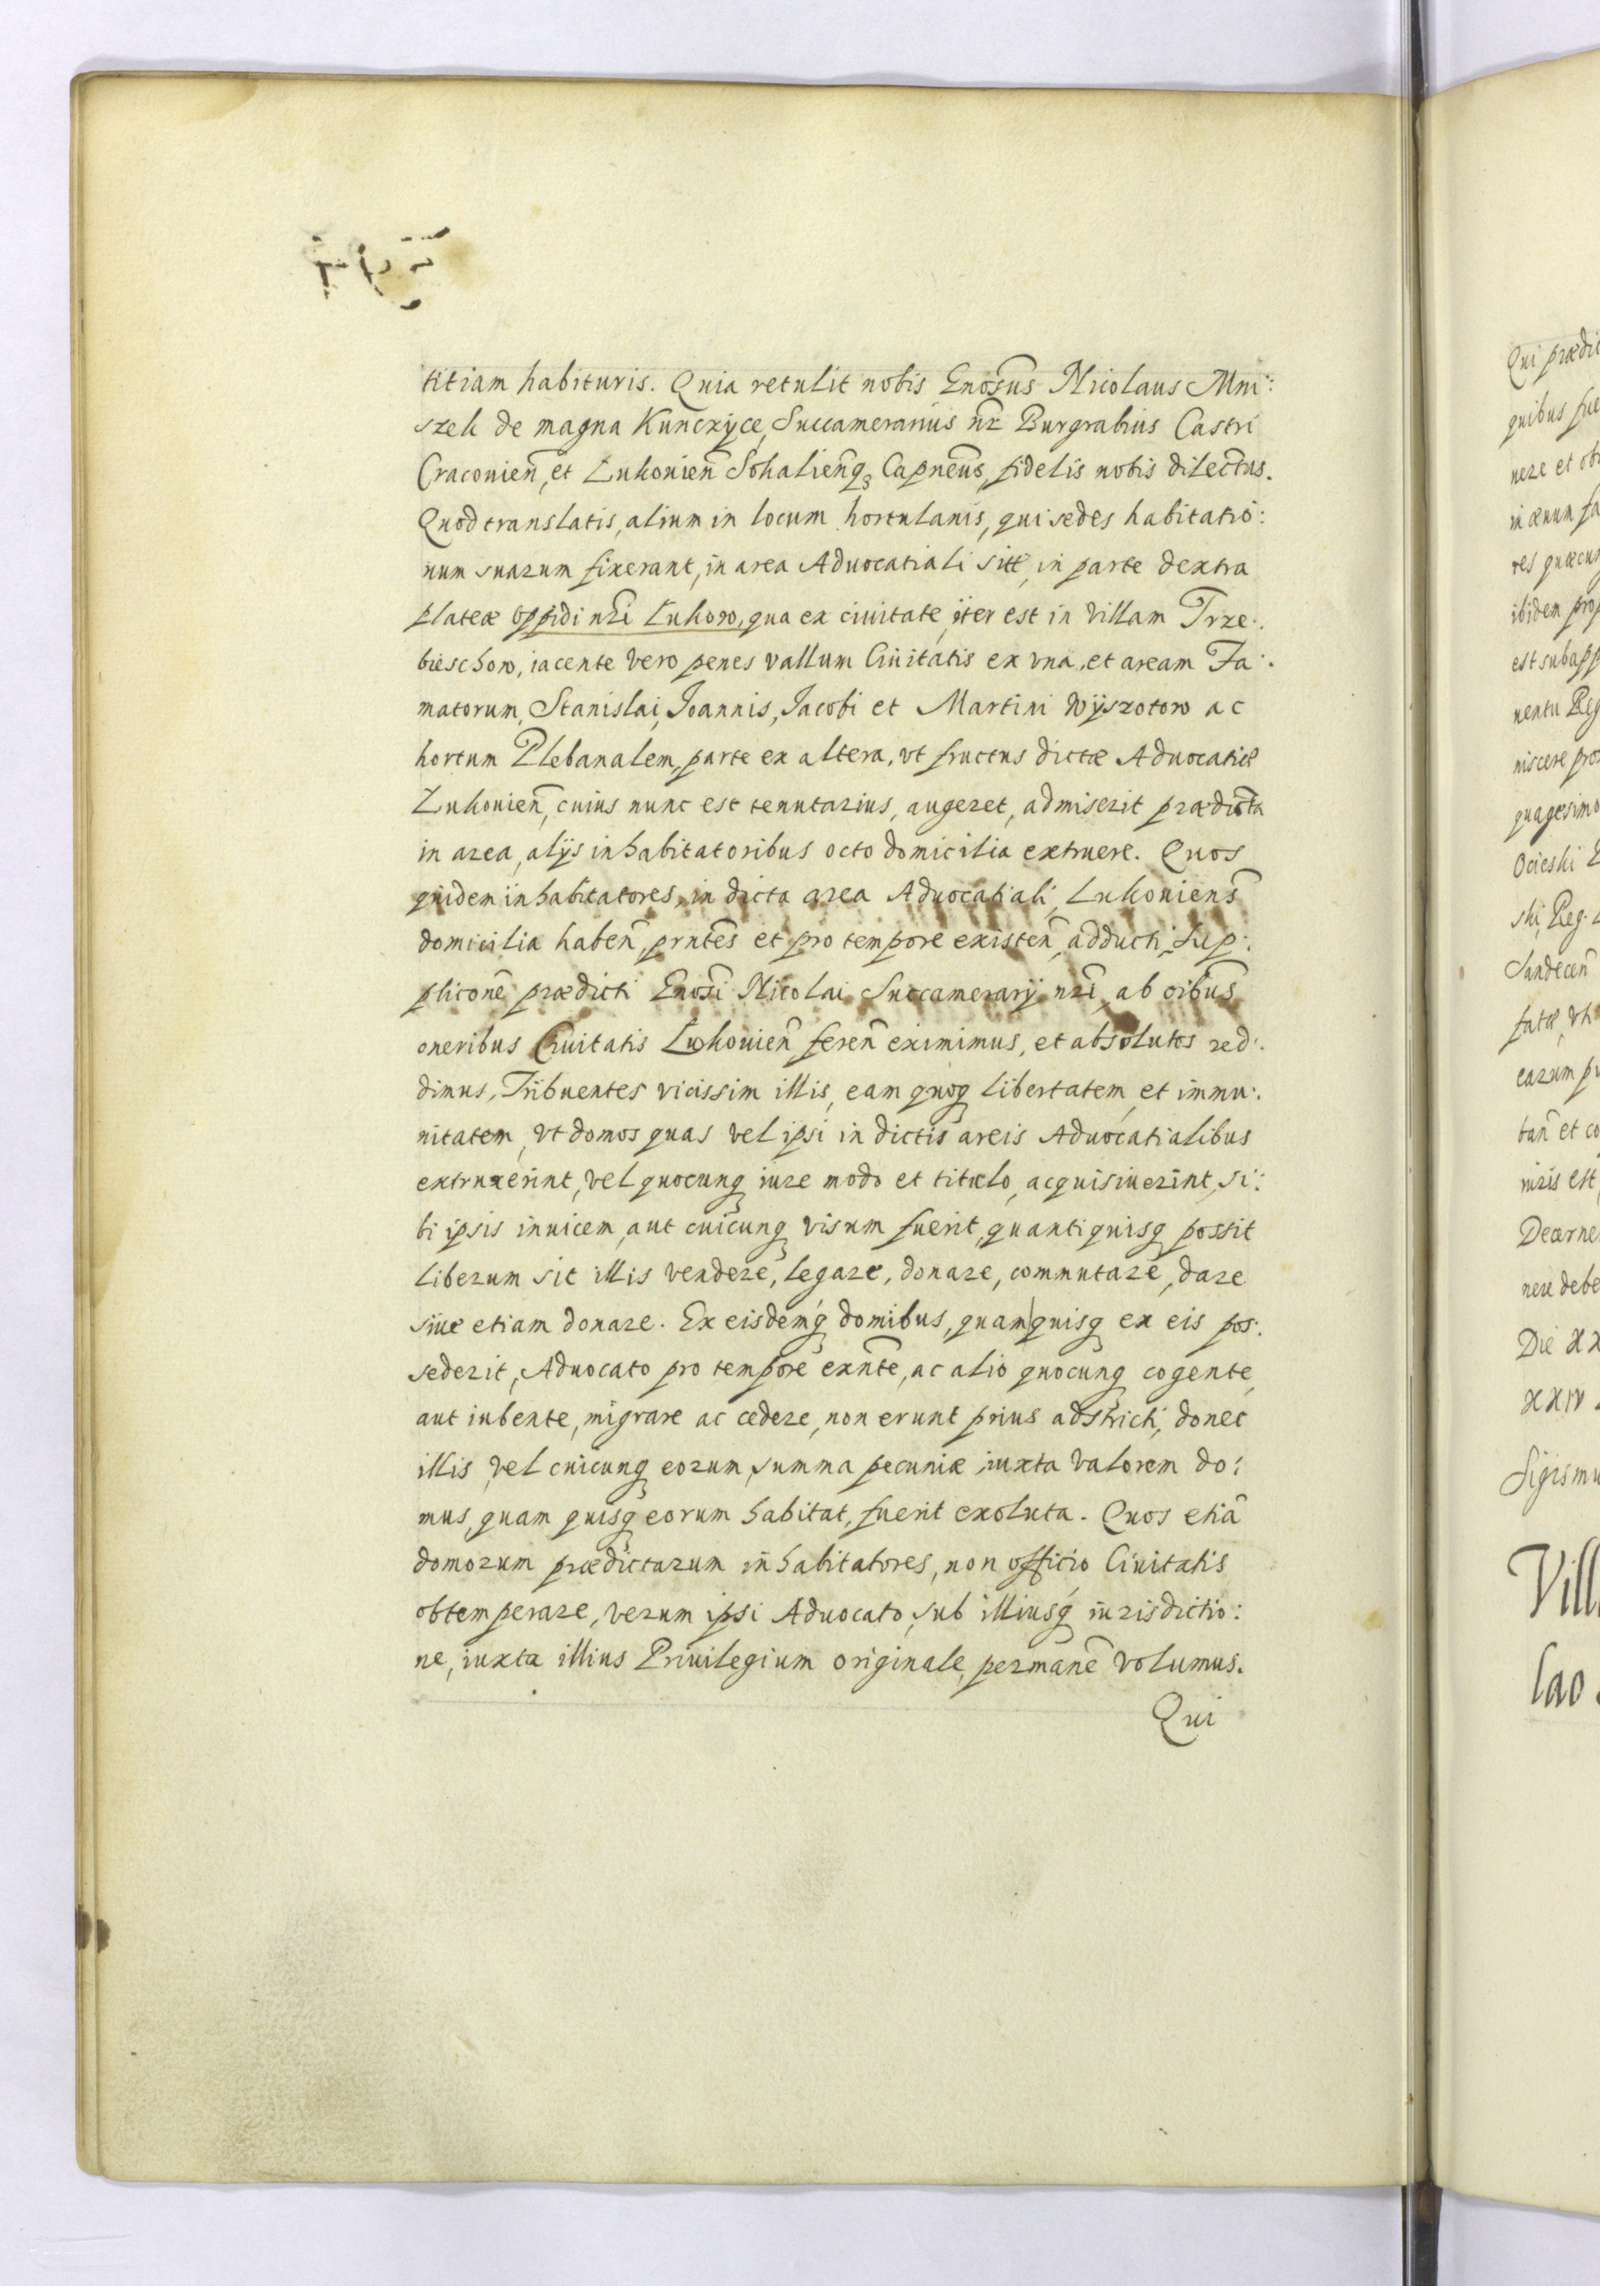 titiam habituris. Quia retulit nobis Gnosus Nicolaus Mni:
szek de magna Kunczyce, Succamerarius nr Burgrabius Castri
Craconien, et Lukonien Sokalienq Capneus, fidelis nobis dilectus.
Quod translatis, alium in locum hortulanis, qui sedes habitatio:
num suarum fixerant, in area Aduocatiali sitt, in parte dextra
plateæ oppidi nri Lukow, qua ex ciuitate iter est in villam Trze:
bieschow, iacente vero penes vallum Ciuitatis ex vna, et aream Fa:
matorum, Stanislai, Joannis, Jacobi et Martini Wyszotow ac
hortum Plebanalem, parte ex altera, vt fructus dictæ Aduocatiæ
Lukonien, cuius nunc est tenutarius, augeret, admiserit prædicta
in area, alijs inhabitatoribus octo domicilia extruere. Quos
quidem inhabitatores, in dicta area Aduocatiali, Lukoniens
domicilia haben, prntes et pro tempore existen, adducti, sup:
plicone prædicti Gnosi Nicolai Succamerarij nri, ab oibus
oneribus Ciuitatis Lukouien feren eximimus, et absolutos red:
dimus, Tribuentes vicissim illis, eam quoq libertatem, et immu:
nitatem, vt domos quas vel ipsi in dictis areis Aduocatialibus
extruxerint, vel quocunq iure modo et titulo, acquisiuerint, si:
bi ipsis inuicem, aut cuicunq visum fuerit, quanti quisq possit
liberum sit illis vendere, legare, donare, commutare, dare
siue etiam donare. Ex eisdemq domibus, quam quisq ex eis pos:
sederit, Aduocato pro tempore exnte, ac alio quocunq cogente,
aut iubente, migrare ac cedere, non erunt prius adstricti, donec
illis, vel cuicunq eorum, summa pecuniæ iuxta valorem do:
mus, quam quisq eorum habitat, fuerit exoluta. Quos etia
domorum prædictarum inhabitatores, non officio Ciuitatis
obtemperare, verum ipsi Aduocato, sub illiusq iurisdictio:
ne, iuxta illius Priuilegium originale, permane volumus.
Qui